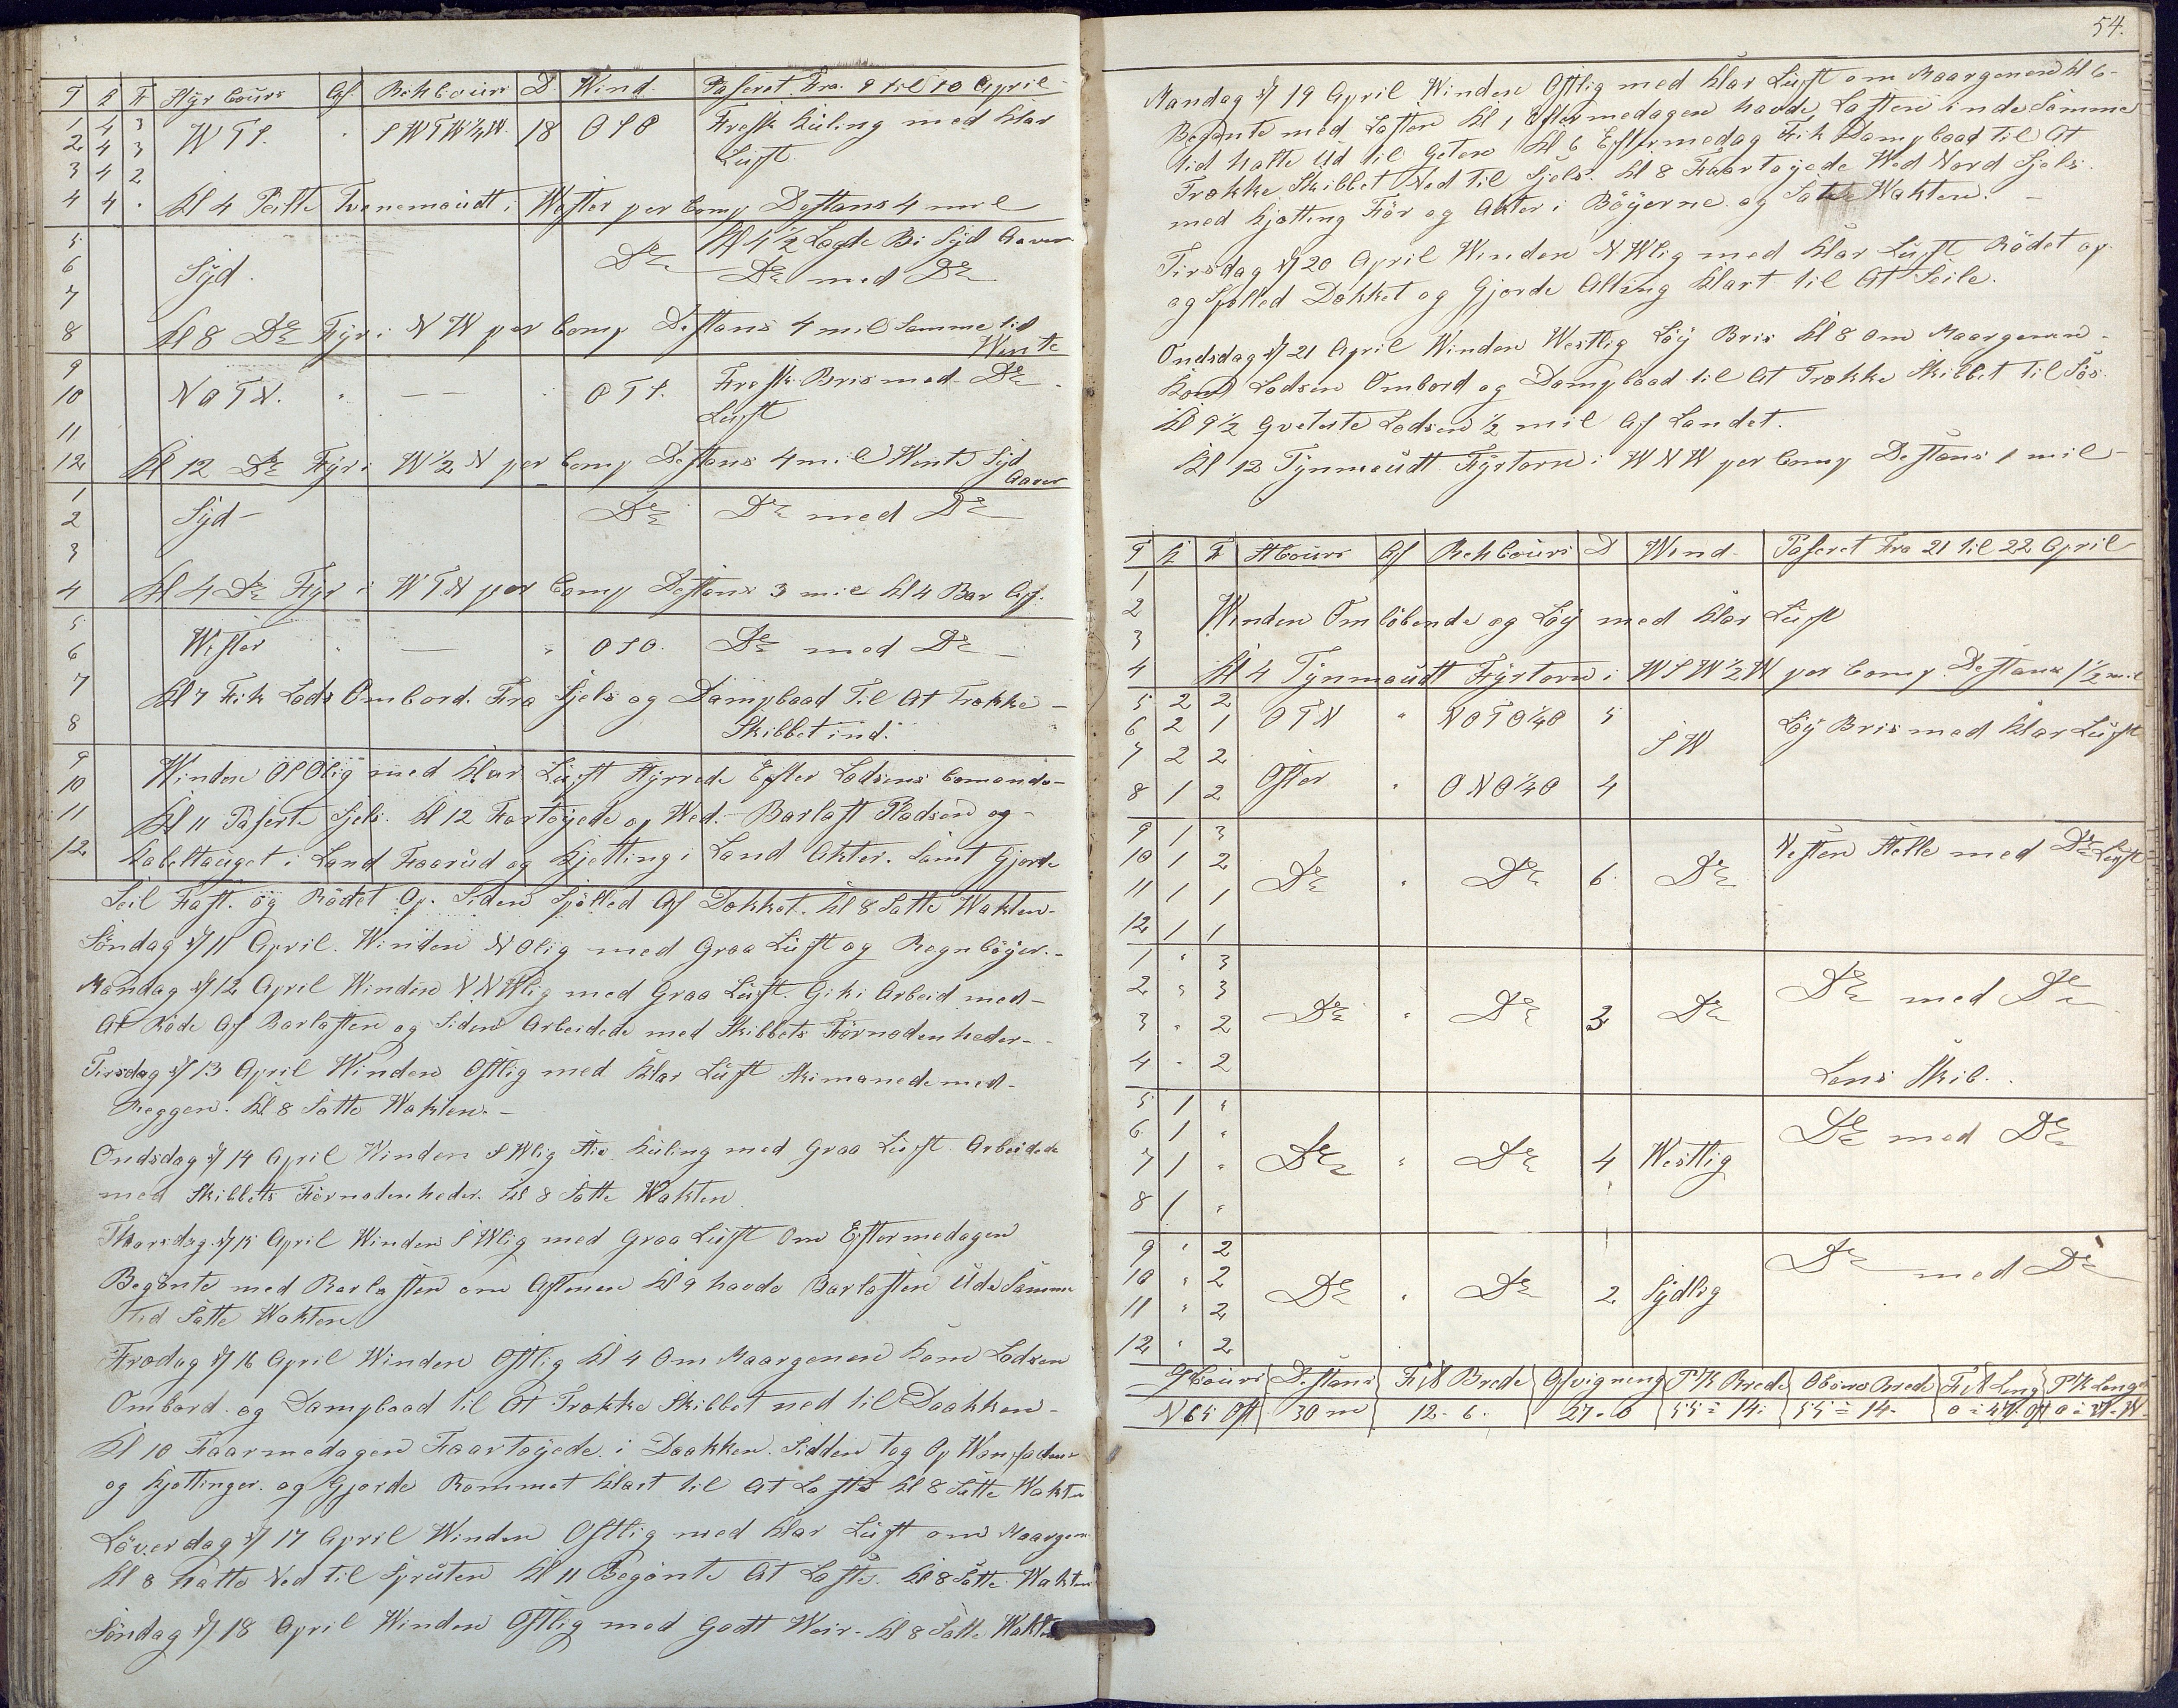 T K F Styr Cours Af. Beh Cours D. Wind. Paseret. Fra. 9 til 10 April
1 4 3
2 4 3 WTS. " SWTW¼W. 18 OSO Fresk Kuling med Klar
3 4 2 Luft
4 4 . Kl 4 Peilte Tynemoudt i Wester per Comp Destans 4 mil
5 Kl 4½ Lagde Bi Syd Aover
6 Syd. Do Do med Do
7
8 Kl 8 Do Fyr i NW per Comp Destans 4 mil Samme tid
Wente
9
10 NOTN. " — — OTS. Fresk Bris med Do
11 Luft
12 Kl 12 Do Fyr i W½N per Comp Destans 4 mil Wente Syd
Aover
1
2 Syd — Do Do med Do
3
4 Kl 4 Do Fyr i WTN per Comp Destans 3 mil Kl 4 Bar Af.
5
6 Wester " — " OSO. Do med Do
7 Kl 7 Fik Lods Ombord. Fra Sjels og Dampbaad Til At Trække
8 Skibbet ind.
9
10 Winden OSOlig med Klar Luft Styrrede Efter Lodsens Comando
11 Kl 11 Paserte Sjels. Kl 12 Fortøyede op Wed. Barlast Pladsen og
12 Kabeltauget i Land Faarud og Kjetting i Land Akter. Samt Gjorde
Seil Fast. og Rödet Op. Siden Spölled Af Dækket. Kl 8 Satte Wakten.
Söndag d/ 11 April. Winden NOlig med Graa Luft og Regnböyer.
Mandag d/ 12 April Winden NNWlig med Graa Luft. Gik i Arbeid med
At Röde Af Barlasten og Siden Arbeidede med Skibbets Förnödenheder
Tirsdag d/ 13 April Winden Ostlig med Klar Luft Skimanede med
Reggen. Kl 8 Satte Wakten.
Ondsdag d/ 14 April Winden SWlig Stiv Kuling med Graa Luft Arbeidede
med Skibbets Förnödenheder. Kl 8 Satte Wakten
Thorsdag. d/ 15 April Winden SWlig med Graa Luft Om Eftermedagen
Begönte med Barlasten om Aftenen Kl 9 havde Barlasten Ude Samme
Tid Satte Wakten
Fredag d/ 16 April Winden Ostlig Kl 4 Om Maargenen Kom Lodsen
Ombord. og Dampbaad til At Trække Skibbet ned til Daakken
Kl 10 Faarmedagen Faartøyede i Daakken. Sidden tog Op
og Kjettinger. og Gjorde Rommet Klart til At Laste Kl 8 Satte Wakten
Löverdag d/ 17 April Winden Ostlig med Klar Luft om Maargen
Kl 8 halte Ned til Spruten Kl 11 Begönte At Laste. Kl 8 Satte Wakten
Söndag d/ 18 April Winden Ostlig med Godt Weir. Kl 8 Satte Wakten
54.
Mandag d/ 19 April Winden Ostlig med Klar Luft om Maargenen Kl 6
Begönte med Lasten Kl 1 Eftermedagen havde Lasten inde Samme
tid halte Ud til Geten Kl 6 Eftermedag Fik Dampbaad til At
Trække Skibbet Ned til Sjels. Kl 8 Faartøyede Wed Nord Sjels.
med Kjetting För og Akter i Böyerne. og Satte Wakten.
Tirsdag d/ 20 April Winden NWlig med Klar Luft. Rödet op
og Spölled Dækket og Gjorde Alting Klart til At Seile.
Ondsdag d/ 21 April Winden Westlig Löy Bris Kl 8 om Maargenen
Kom Lodsen Ombord og Dampbaad til At Trække Skibbet til Sös.
Kl 9½ Qveterte Lodsen ½ mil Af Landet.
Kl 12 Tynmoudt Fyrtorn i WNW per Comp Destans 1 mil
T K F St Cours Af Beh Cours D Wind Paseret Fra 21 til 22 April
1
2 Winden Omlöbende og Löy med Klar Luft
3
4 Kl 4 Tynmoudt Fyrtorn i WSW½W per Comp. Destans 1½ mil
5 2 2
6 2 1 OTN " NOTO¼O 5 Löy Bris med Klar Luft
7 2 2 SW
8 1 2 Oster " ONO¼O 4
9 1 3
10 1 2 Do " Do 6 Do Nesten Stelle med Do Luft
11 1 1
12 1 1
1 " 3
2 " 3 Do " Do 3 Do Do med Do
3 " 2
4 " 2 Lens Skib.
5 1 "
6 1 " Do med Do
7 1 " Do " Do 4 Westlig
8 1 "
9 " 2
10 " 2 Do " Do 2 Sydlig Do med Do
11 " 2
12 " 2
G Cours Destans F. A Brede Afvigning P/K Brede Obsirv Brede F. A Leng P/K Lengde
N 65 Ost 30 m 12-6. 27-0 55=14. 55=14.